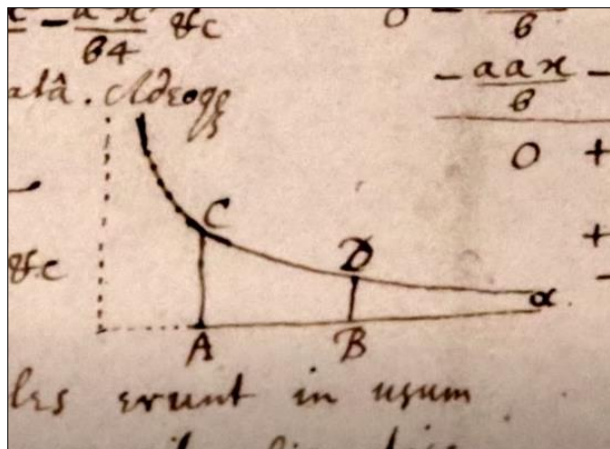 - ax/64 &c
0 - /6
- aax/6 -
atâ. Adeoqꝫ
0 +
C
+
&c
D
-
α
A B
les erunt in usum